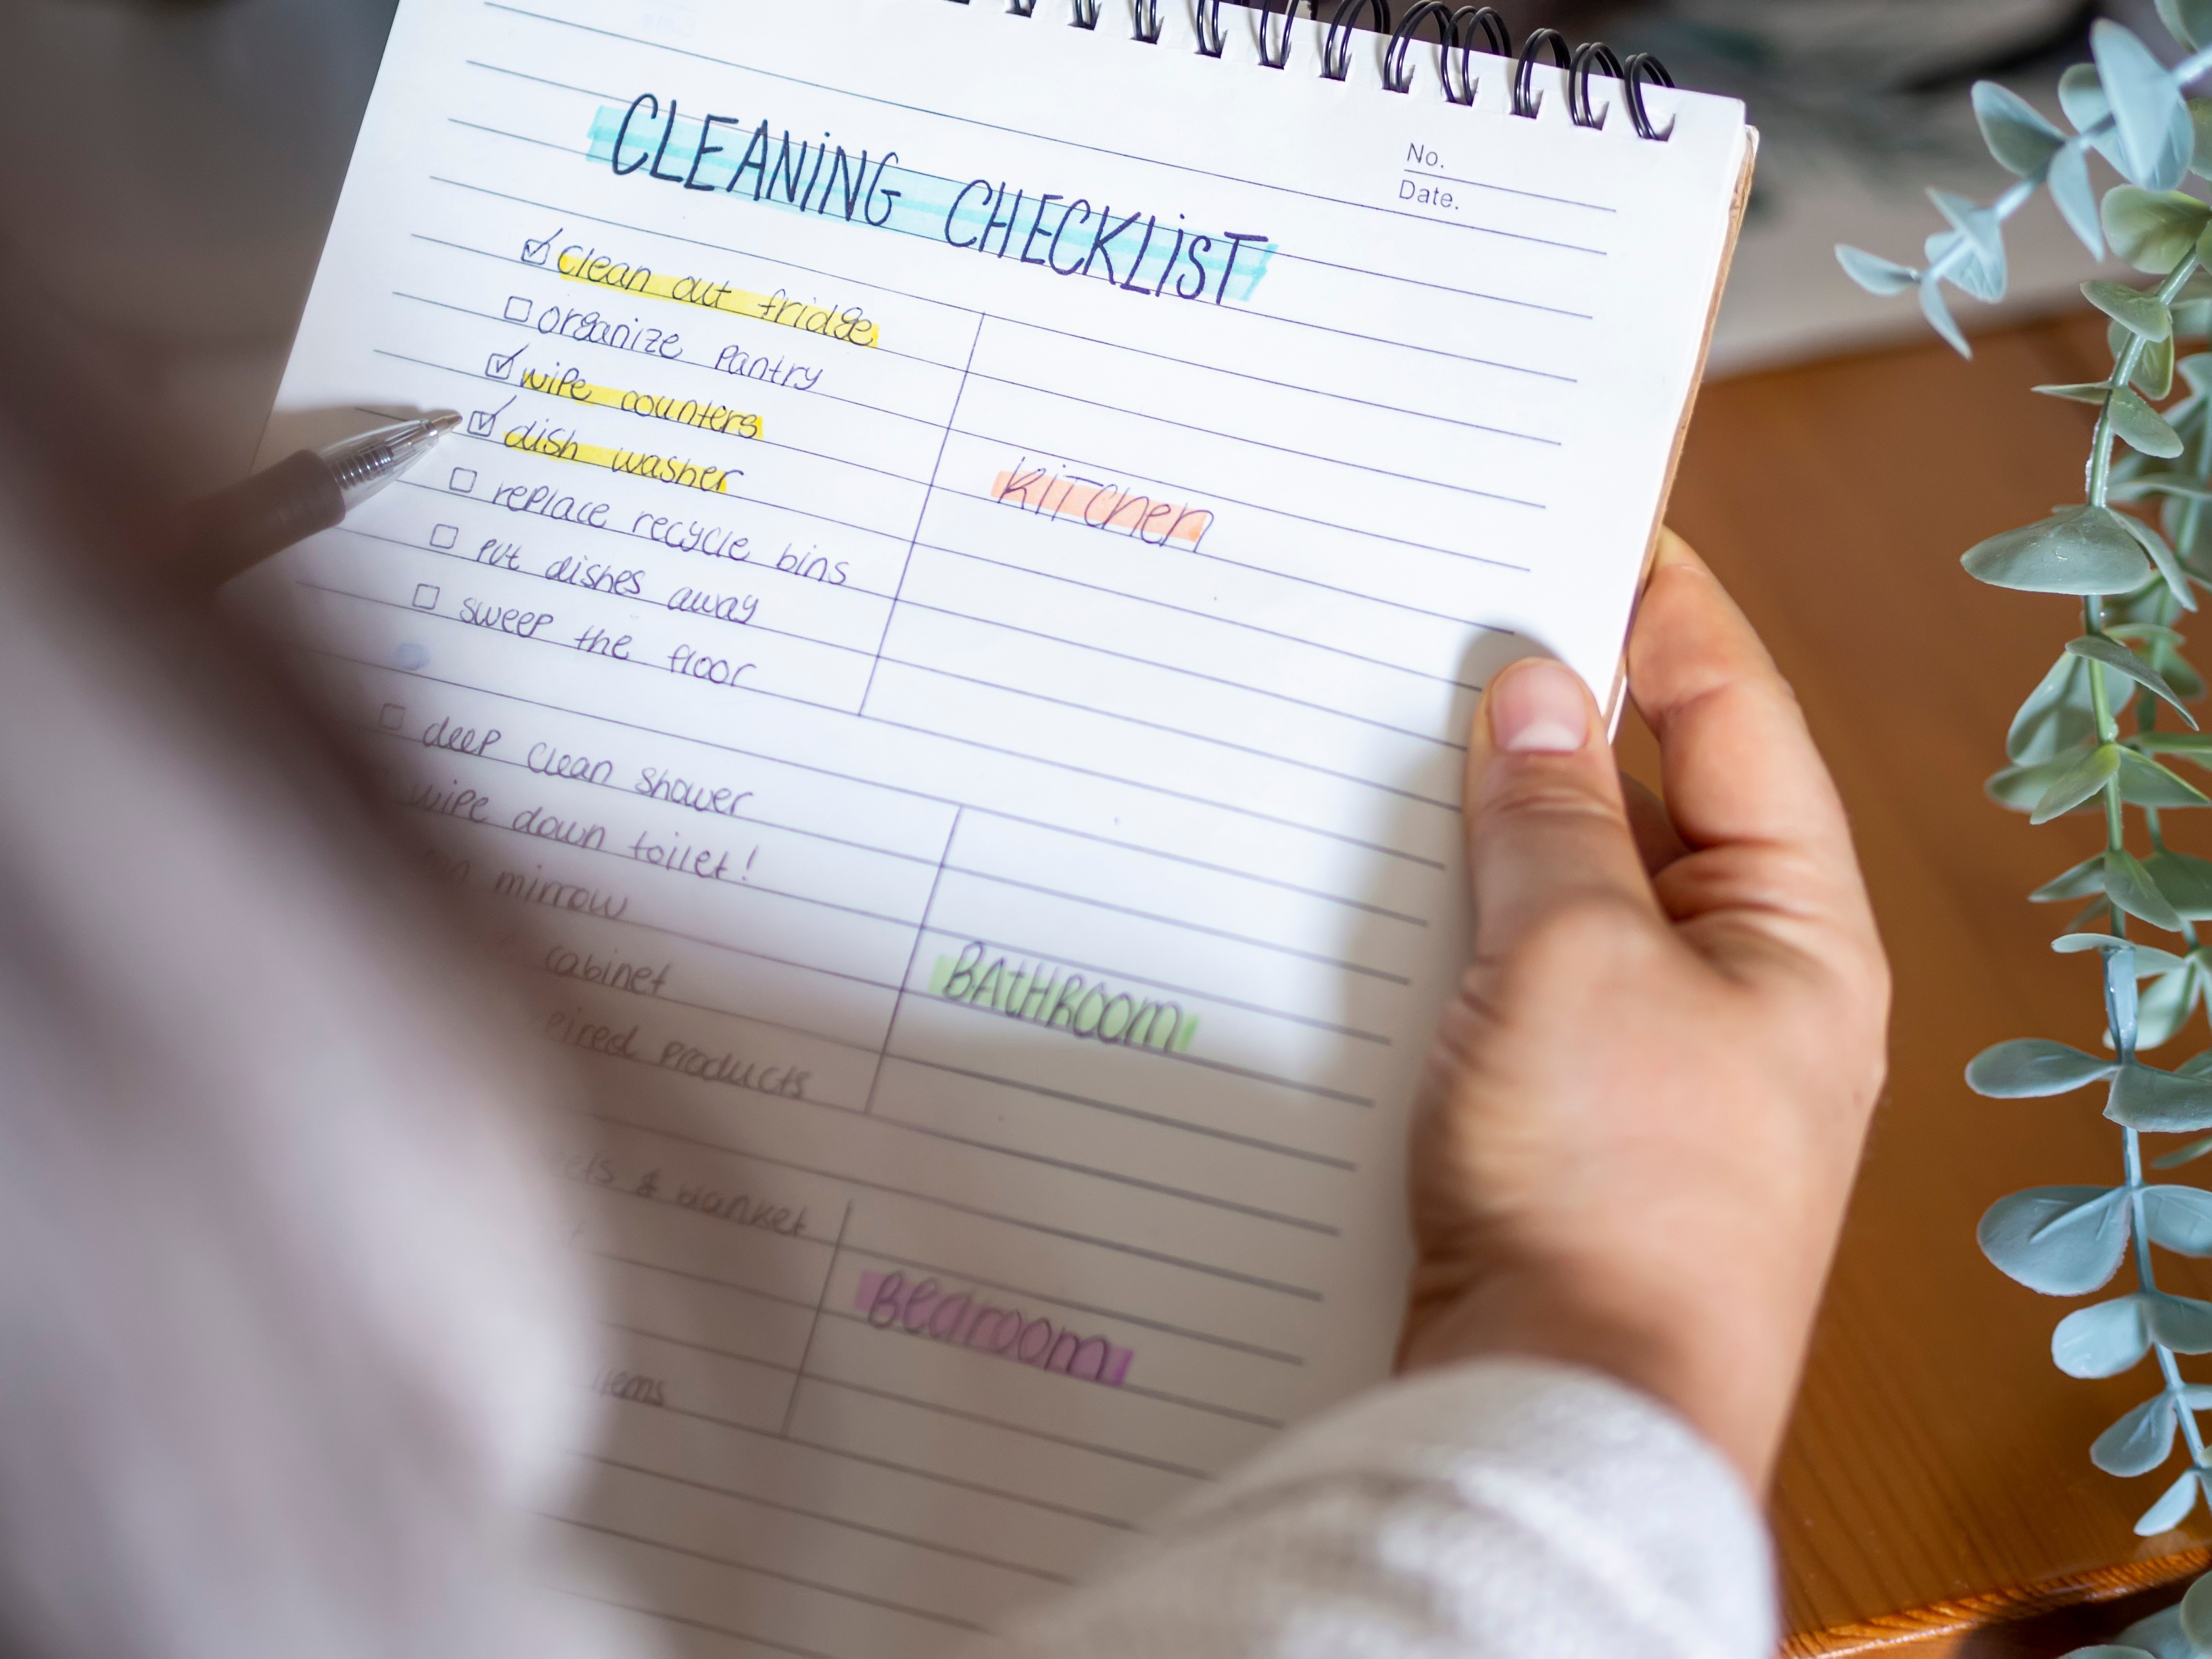 No.
Date.
CLEANiNG CHECKLiST
☑ clean out fridge
☐ organize pantry
☑ wipe counters
☑ dish washer
☐ replace recycle bins
☐ put dishes away
☐ sweep the floor
KiTchen
☐ deep clean shower
wipe down toilet!
mirrow
cabinet
products
BAtHRoom
& blanket
items
Bedroom